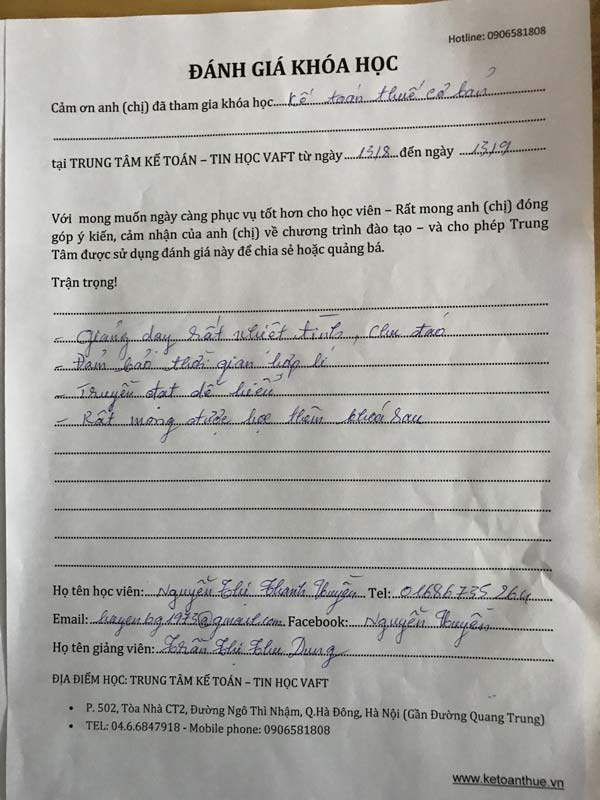 Hotline: 0906581808
ĐÁNH GIÁ KHÓA HỌC
Cảm ơn anh (chị) đã tham gia khóa học.....Kế toán thuế cơ bản
tại TRUNG TÂM KẾ TOÁN – TIN HỌC VAFT từ ngày.....13/8.....đến ngày ...13/9...
Với mong muốn ngày càng phục vụ tốt hơn cho học viên – Rất mong anh (chị) đóng
góp ý kiến, cảm nhận của anh (chị) về chương trình đào tạo – và cho phép Trung
Tâm được sử dụng đánh giá này để chia sẻ hoặc quảng bá.
Trận trọng!
- Giảng dạy rất nhiệt tình, chu đáo
- Đảm bảo thời gian hợp lí
- Truyền đạt dễ hiểu
- Rất mong được học thêm khoá sau
Họ tên học viên: Nguyễn Thị Thanh Huyền Tel: 01686735264
Email: huyenbg1973@gmail.com Facebook: Nguyễn Huyền
Họ tên giảng viên: Trần Thị Thu Dung
ĐỊA ĐIỂM HỌC: TRUNG TÂM KẾ TOÁN – TIN HỌC VAFT
• P. 502, Tòa Nhà CT2, Đường Ngô Thì Nhậm, Q.Hà Đông, Hà Nội (Gần Đường Quang Trung)
• TEL: 04.6.6847918 - Mobile phone: 0906581808
www.ketoanthue.vn